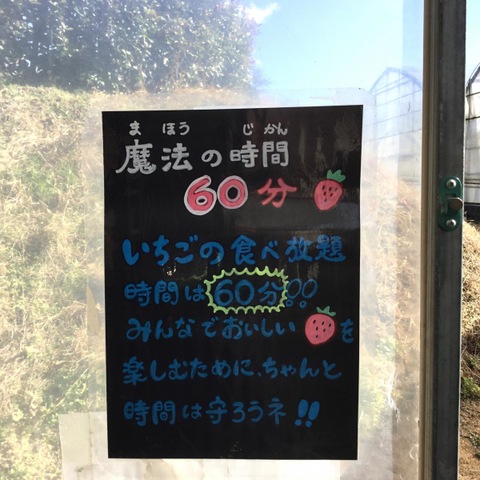 まほう じかん
魔法の時間
60分
いちごの食べ放題
時間は60分!!
みんなでおいしい を
楽しむために、ちゃんと
時間は守ろうネ!!